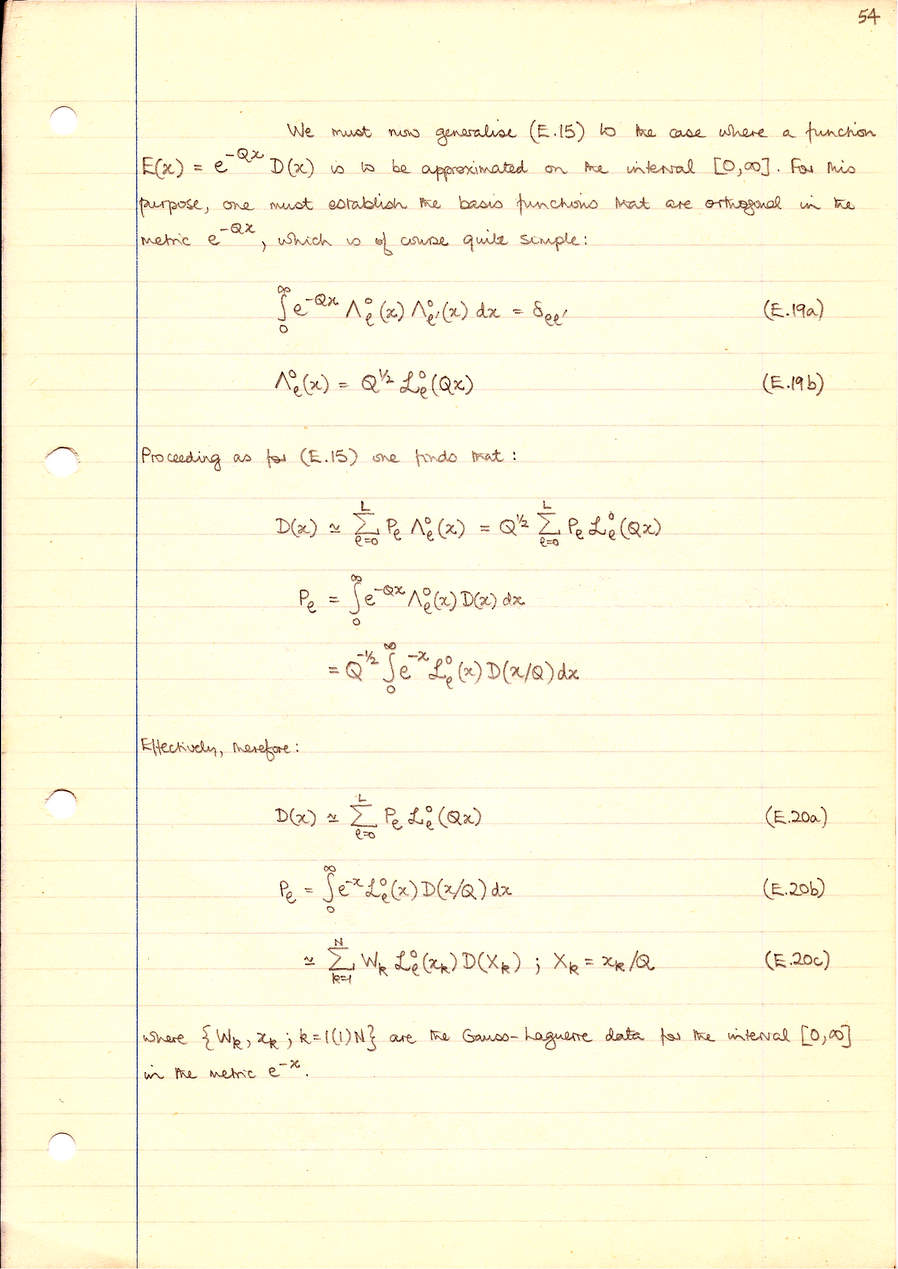 54
We must now generalise (E.15) to the case where a function
E(x) = e^{-Qx} D(x) is to be approximated on the interval [0,∞]. For this
purpose, one must establish the basis functions that are orthogonal in the
metric e^{-Qx}, which is of course quite simple:
∫_0^∞ e^{-Qx} Λ_ℓ^0(x) Λ_ℓ'^0(x) dx = δ_ℓℓ' (E.19a)
Λ_ℓ^0(x) = Q^{1/2} ℒ_ℓ^0(Qx) (E.19b)
Proceeding as for (E.15) one finds that:
D(x) ≃ Σ_{ℓ=0}^L P_ℓ Λ_ℓ^0(x) = Q^{1/2} Σ_{ℓ=0}^L P_ℓ ℒ_ℓ^0(Qx)
P_ℓ = ∫_0^∞ e^{-Qx} Λ_ℓ^0(x) D(x) dx
= Q^{-1/2} ∫_0^∞ e^{-x} ℒ_ℓ^0(x) D(x/Q) dx
Effectively, therefore:
D(x) ≃ Σ_{ℓ=0}^L P_ℓ ℒ_ℓ^0(Qx) (E.20a)
P_ℓ = ∫_0^∞ e^{-x} ℒ_ℓ^0(x) D(x/Q) dx (E.20b)
≃ Σ_{k=1}^N W_k ℒ_ℓ^0(x_k) D(X_k) ; X_k = x_k/Q (E.20c)
where {W_k, x_k ; k=1(1)N} are the Gauss-Laguerre data for the interval [0,∞]
in the metric e^{-x}.